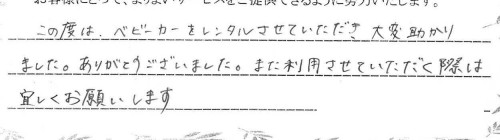 お客様にとって、よりよいサービスをご提供できるように努力いたします。
この度は、ベビーカーをレンタルさせていただき 大変助かり
ました。ありがとうございました。また利用させていただく際は
宜しくお願いします